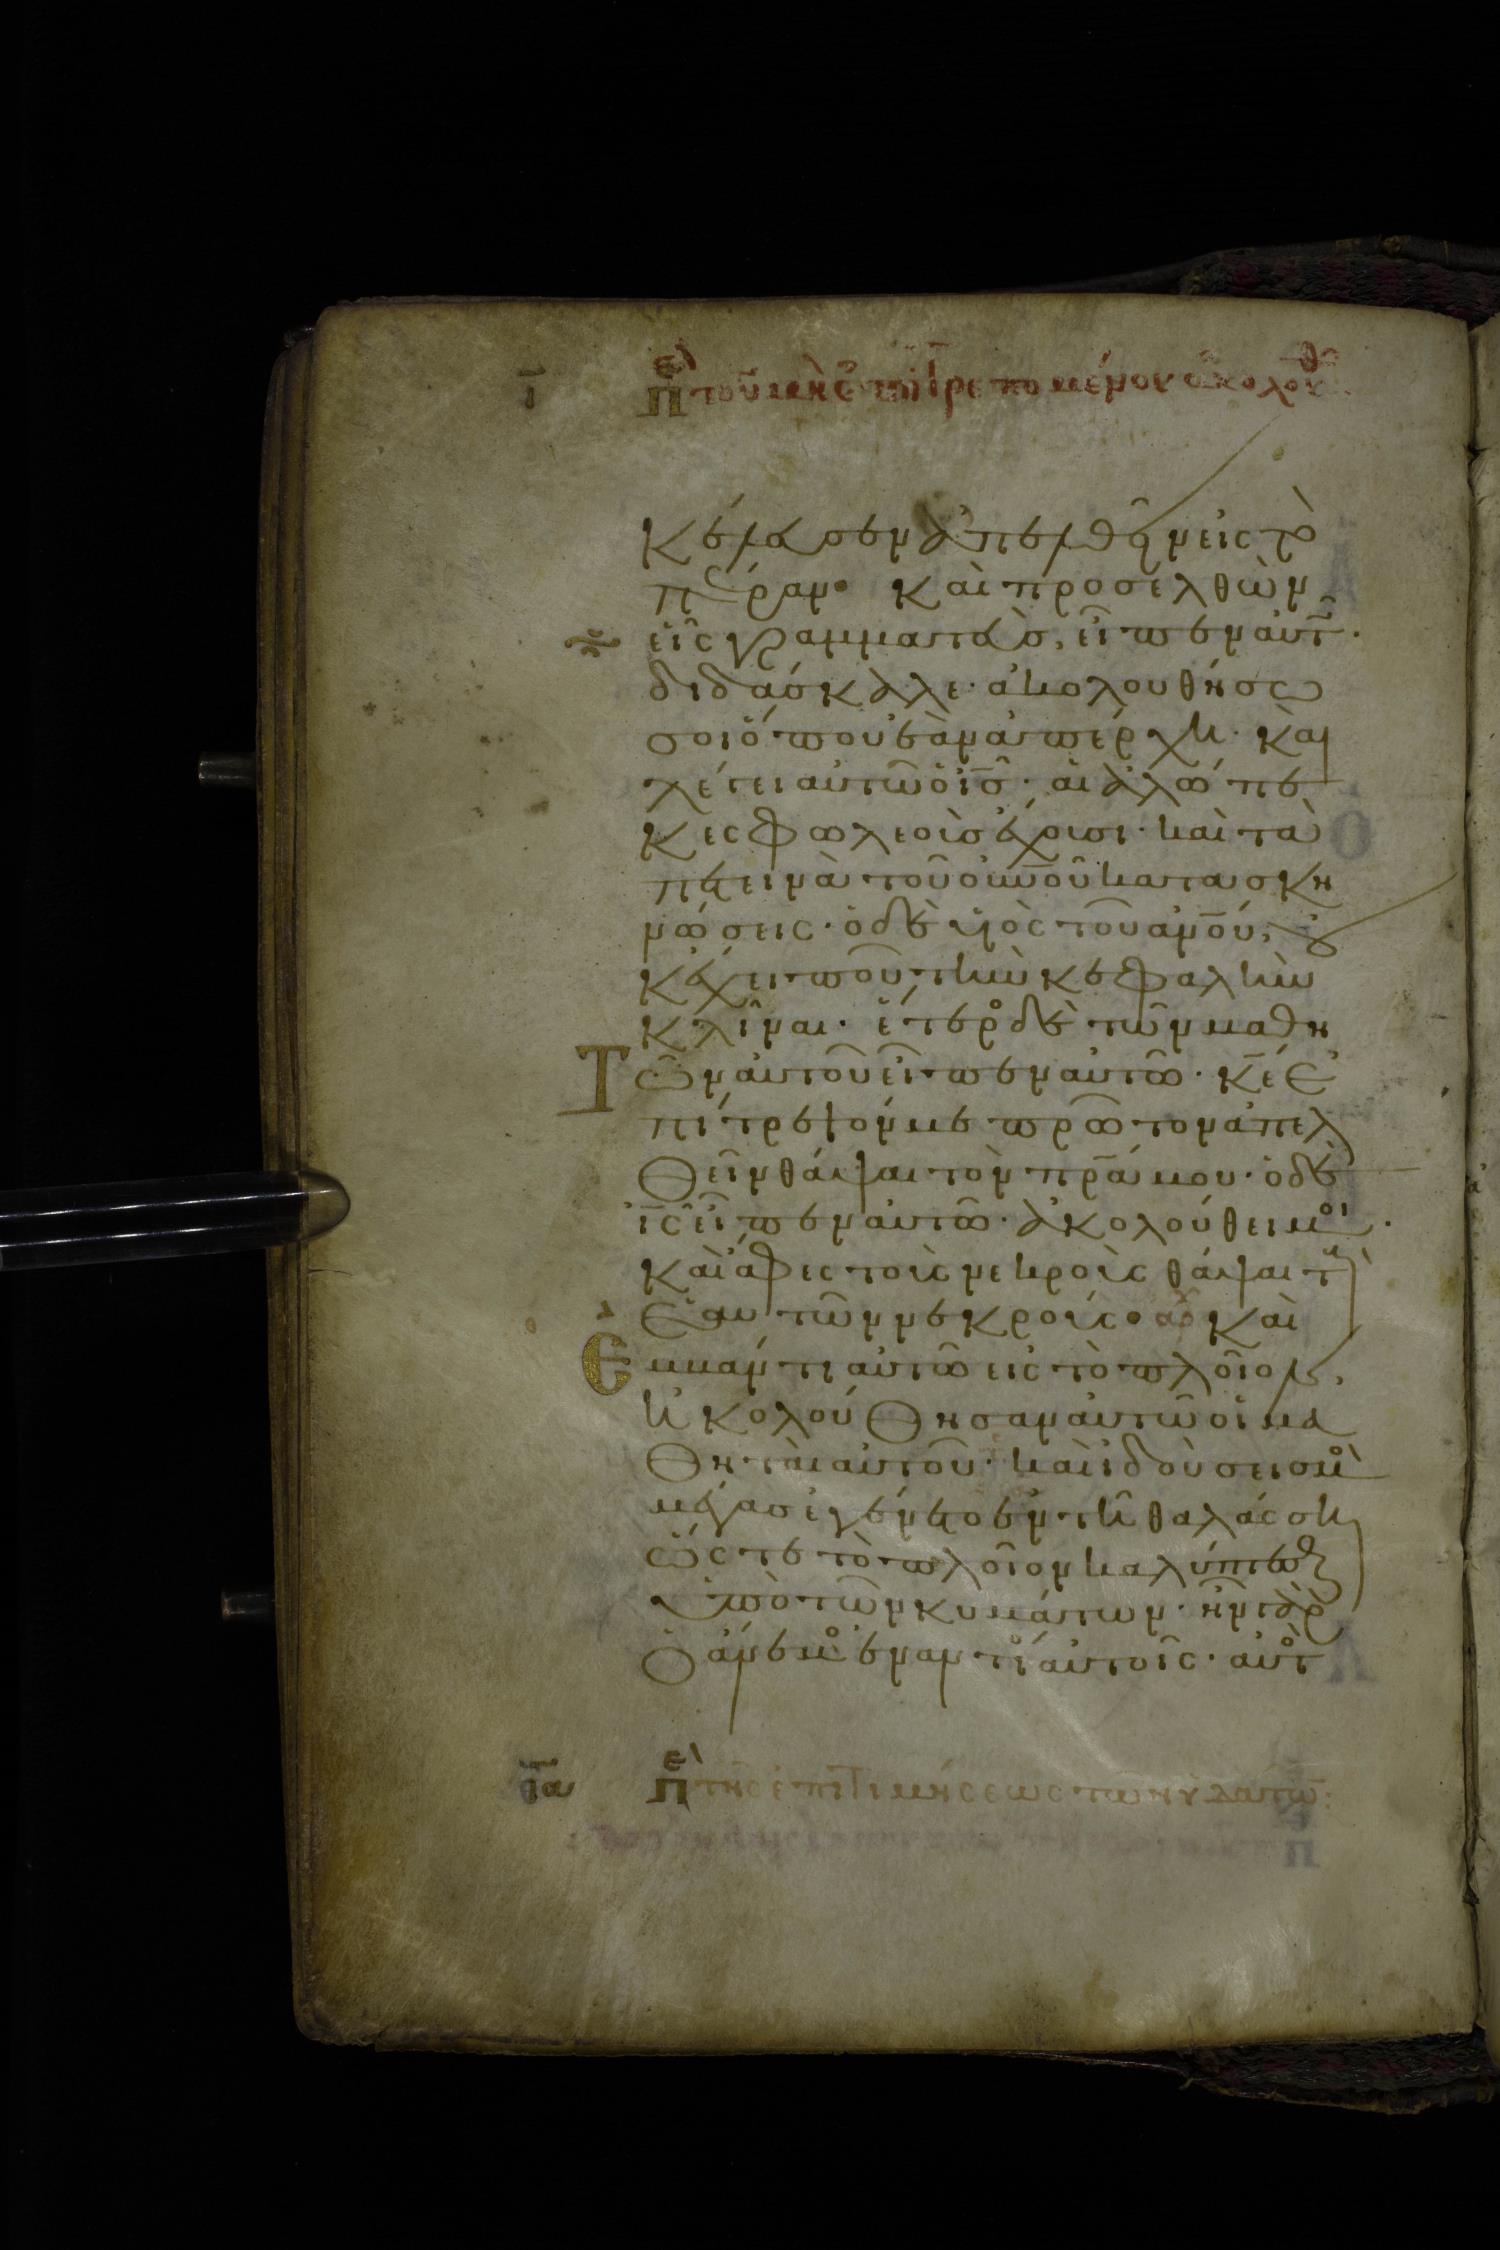 ι̅ πε τοῦ μὴ ἐπιτρεπομένου ἀκολουθ
κέλευσεν ἀπελθεῖν εἰς τὸ
πέραν. καὶ προσελθὼν
εἷς γραμματεὺς, εἶπεν αὐτ̅.
διδάσκαλε. ἀκολουθήσω
σοι ὅπου ἐὰν ἀπέρχη. καὶ
λέγει αὐτῶ ὁ ι̅ς̅. αἱ ἀλώπε
κες φωλεοὺς ἔχουσι. καὶ τὰ
πετεινὰ τοῦ ου̅νου̅ κατασκη
νώσεις. ὁ δὲ υἱὸς τοῦ α̅νο̅υ, οὐ
κ ἔχει ποῦ τὴν κεφαλὴν
κλῖναι. ἕτερος δὲ τῶν μαθη
τῶν αὐτοῦ εἶπεν αὐτῶ. κ̅ε̅ ἐ
πίτρεψόν με πρῶτον ἀπελ
θεῖν θάψαι τὸν π̅ρ̅α μου. ὁ δὲ
ι̅ς̅ εἶπεν αὐτῶ. ἀκολούθει μοι.
καὶ ἄφες τοὺς νεκροὺς θάψαι τοὺς
ἑαυτῶν νεκρούς. αρ καὶ
ἐμβάντι αὐτῶ εἰς τὸ πλοῖον,
ἠκολούθησαν αὐτῶ οἱ μα
θηταὶ αὐτοῦ. καὶ ἰδοὺ σεισμὸς
μέγας ἐγένετο ἐν τῆ θαλάσση
ὥστε τὸ πλοῖον καλύπτεσθαι
ὑπὸ τῶν κυμάτων. ἦν γὰρ
ὁ ἄνεμος ἐναντίος αὐτοῖς. αὐτὸς
ι̅α̅ πε τῆς ἐπιτιμήσεως τῶν ὑδάτω̅: